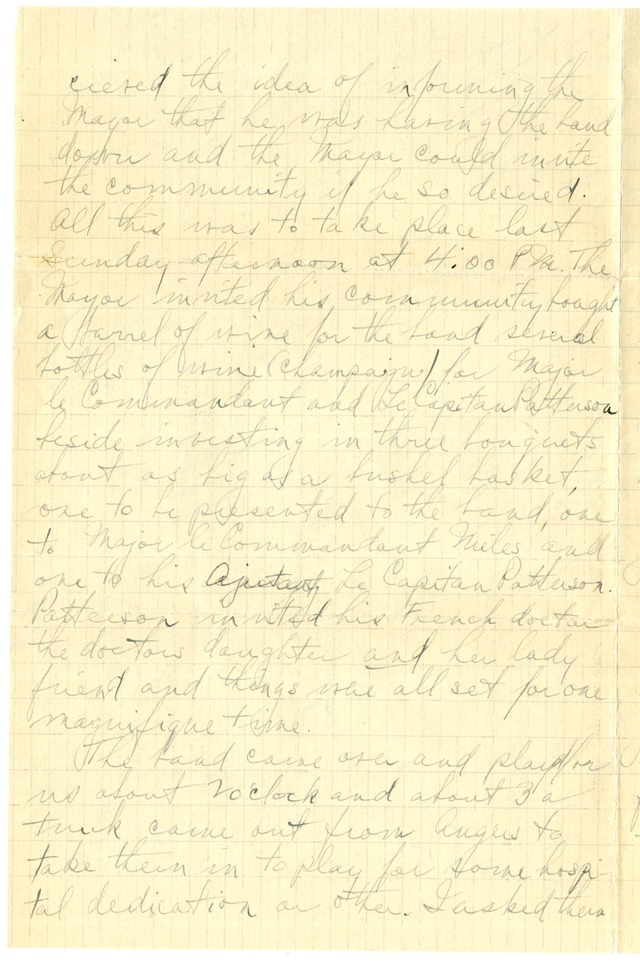 cieved the idea of informing the
Mayor that he was having the band
down and the Mayor could invite
the community if he so desired.
All this was to take place last
Sunday afternoon at 4:00 PM. The
Mayor invited his community bought
a barrel of wine for the band several
bottles of wine (champaign) for Major
le Commandant and Le Capitan Patterson
beside investing in three bouquets
about as big as a bushel basket,
one to be presented to the band, one
to Major le Commandant Miles and
one to his Ajutant Le Capitan Patterson.
Patterson invited his French doctor
the doctors daughter and her lady
friend and things were all set for one
magnifique time.
The band came over and played for
us about 2 oclock and about 3 a
truck came out from Angers to
take them in to play for some hospi
tal dedication or other. I asked them